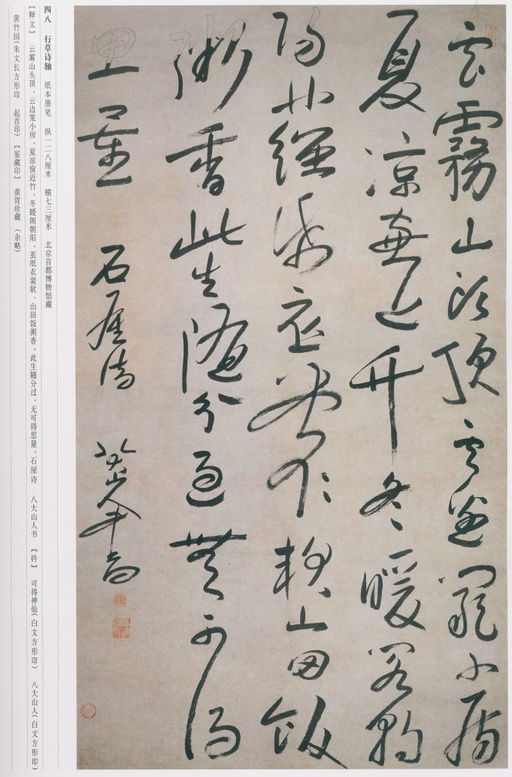 云霧山頭頂雲邊籠小房
夏涼窗近竹冬暖閣朝
陽繭紙衣裳軟山田飯
粥香此生隨分過無可得
思量 石屋詩 八大山人書
四八 行草诗轴 纸本墨笔 纵一二八厘米 横七三厘米 北京首都博物馆藏
【释文】 云雾山头顶，云边笼小房，夏凉窗近竹，冬暖阁朝阳，茧纸衣裳软，山田饭粥香，此生随分过，无可得思量，石屋诗 八大山人书 【钤】 可得神仙(白文方形印) 八大山人(白文方形印)
黄竹园(朱文长方形印 起首印) 【鉴藏印】 黄胄珍藏 (余略)